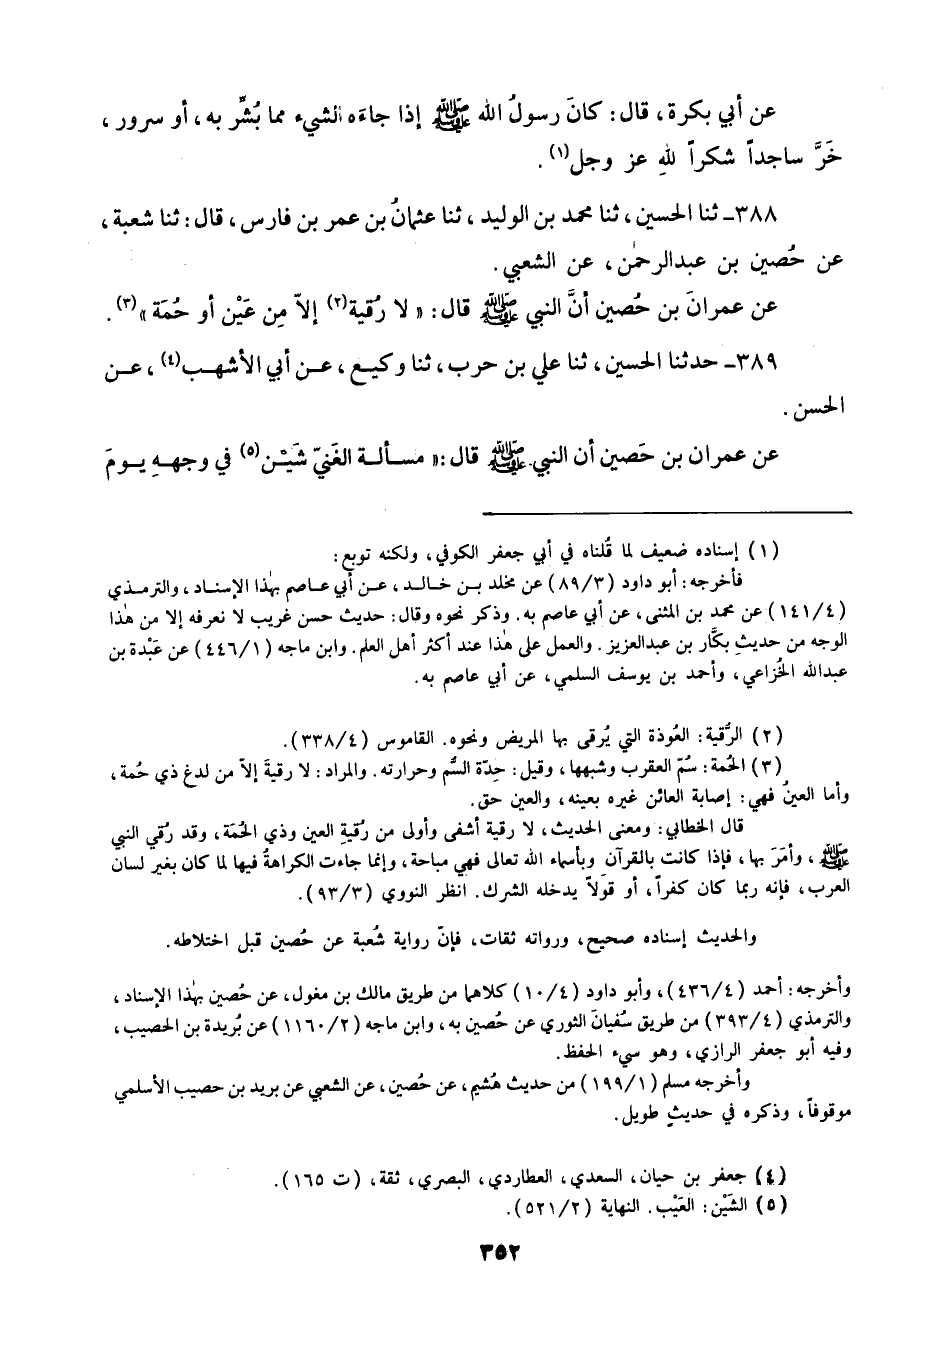 عن أبي بكرة، قال: كانَ رسولُ الله ﷺ إذا جاءَه الشيء مما بُشِّر به، أو سرور،
خَرَّ ساجداً شكراً للهِ عز وجل(١).
٣٨٨ـ ثنا الحسين، ثنا محمد بن الوليد، ثنا عثمانُ بن عمر بن فارس، قال: ثنا شعبة،
عن حُصين بن عبدالرحمٰن، عن الشعبي.
عن عمرانَ بن حُصين أنَّ النبي ﷺ قال: «لا رُقية(٢) إلاّ مِن عَيْن أو حُمَة»(٣).
٣٨٩ـ حدثنا الحسين، ثنا علي بن حرب، ثنا وكيع، عن أبي الأشهب(٤)، عن
الحسن.
عن عمران بن حَصين أن النبي ﷺ قال: «مسألة الغَنيّ شَيْن(٥) في وجههِ يومَ
(١) إسناده ضعيف لما قُلناه في أبي جعفر الكوفي، ولكنه توبع:
فأخرجه: أبو داود (٨٩/٣) عن مخلد بن خالد، عن أبي عاصم بهٰذا الإسناد، والترمذي
(١٤١/٤) عن محمد بن المثنى، عن أبي عاصم به. وذكر نحوه وقال: حديث حسن غريب لا نعرفه إلا من هٰذا
الوجه من حديثِ بكَّار بن عبدالعزيز. والعمل على هٰذا عند أكثر أهل العلم. وابن ماجه (٤٤٦/١) عن عَبْدة بن
عبدالله الخُزاعي، وأحمد بن يوسف السلمي، عن أبي عاصم به.
(٢) الرُّقية: العُوذة التي يُرقى بها المريض ونحوه. القاموس (٣٣٨/٤).
(٣) الحُمة: سُمّ العقرب وشبهها، وقيل: حِدّة السُّم وحرارته. والمراد: لا رقيةَ إلاّ من لدغ ذي حُمة،
وأما العينُ فهي: إصابة العائن غيره بعينه، والعين حق.
قال الخطابي: ومعنى الحديث، لا رقية أشفى وأولى من رُقيةِ العين وذي الحُمَة، وقد رُقي النبي
ﷺ، وأمَرَ بها، فإذا كانت بالقرآن وبأسماء الله تعالى فهي مباحة، وإنما جاءت الكراهةُ فيها لما كان بغير لسان
العرب، فإنه ربما كان كفراً، أو قولاً يدخله الشرك. انظر النووي (٩٣/٣).
والحديث إسناده صحيح، ورواته ثقات، فإنّ رواية شُعبة عن حُصين قبل اختلاطه.
وأخرجه: أحمد (٤٣٦/٤)، وأبو داود (١٠/٤) كلاهما من طريق مالك بن مغول، عن حُصين بهٰذا الإسناد،
والترمذي (٣٩٣/٤) من طريق سُفيانَ الثوري عن حُصين به، وابن ماجه (١١٦٠/٢) عن بُريدة بن الحصيب،
وفيه أبو جعفر الرازي، وهو سيء الحفظ.
وأخرجه مسلم (١٩٩/١) من حديث هُشيم، عن حُصين، عن الشعبي عن بريد بن حصيب الأسلمي
موقوفاً، وذكره في حديثٍ طويل.
(٤) جعفر بن حيان، السعدي، العطاردي، البصري، ثقة، (ت ١٦٥).
(٥) الشَيْن: العَيْب. النهاية (٥٢١/٢).
٣٥٢